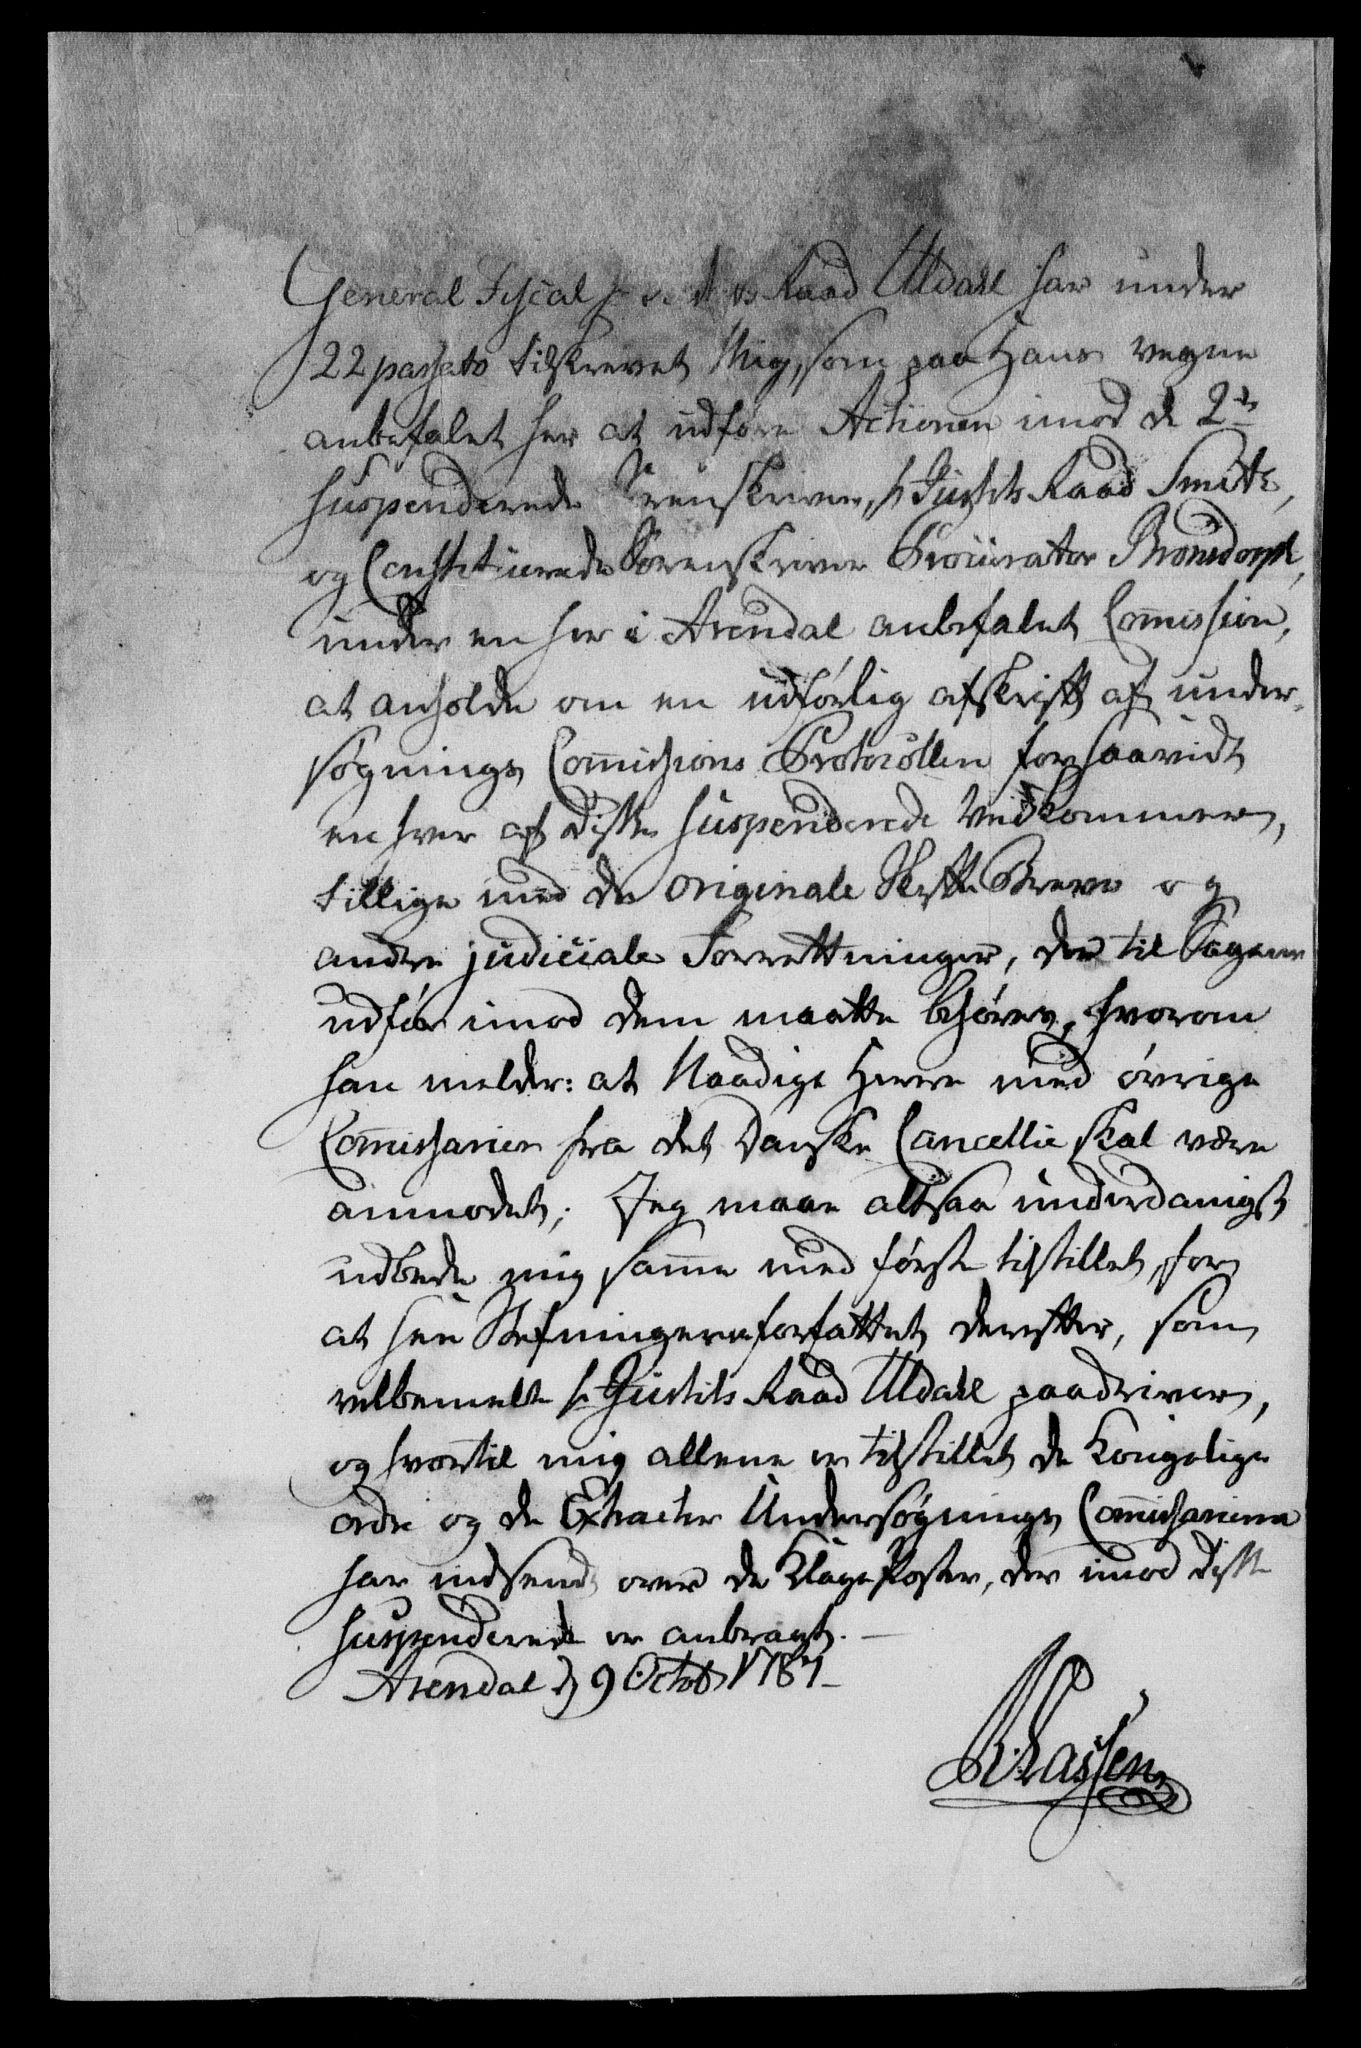 General Fiscal Raad Uldall har under
22 passato tilskrevet Mig, som paa Hans vegne
anbefalet her at udføre Actionen imod de 2de
suspenderede Sorenskrivere, hr Justits Raad Smith,
og Constituerede Sorenskriver Procurator Bronsdorph,
under en her i Arendal anbefalet Commission,
at anholde om en udførlig afskrift af under-
søgnings Commissions Protocollen forsaavidt
en hver af disse suspenderede vedkommer,
tillige med de originale Skifte Breve og
andre judiciale Forrettninger, der til Sagens
udfør imod dem maatte behøves, hvorom
han melder: at Naadige Herre med øvrige
Commissarier fra det Danske Cancellie skal være
anmodet; Jeg maae altsaa underdanigst
udbede mig samme med første tilstillet, for
at see Stefningerne forfattet derefter, som
velbemelte hr Justits Raad Uldall paadriver,
og hvortil mig allene er tilstillet de Kongelige
ordre og de Extracter Undersøgnings Commissarierne
har indsendt over de Klage Poster, der imod disse
suspenderede er anbragt. —
Arendal d 9 Octob 1787
Classen